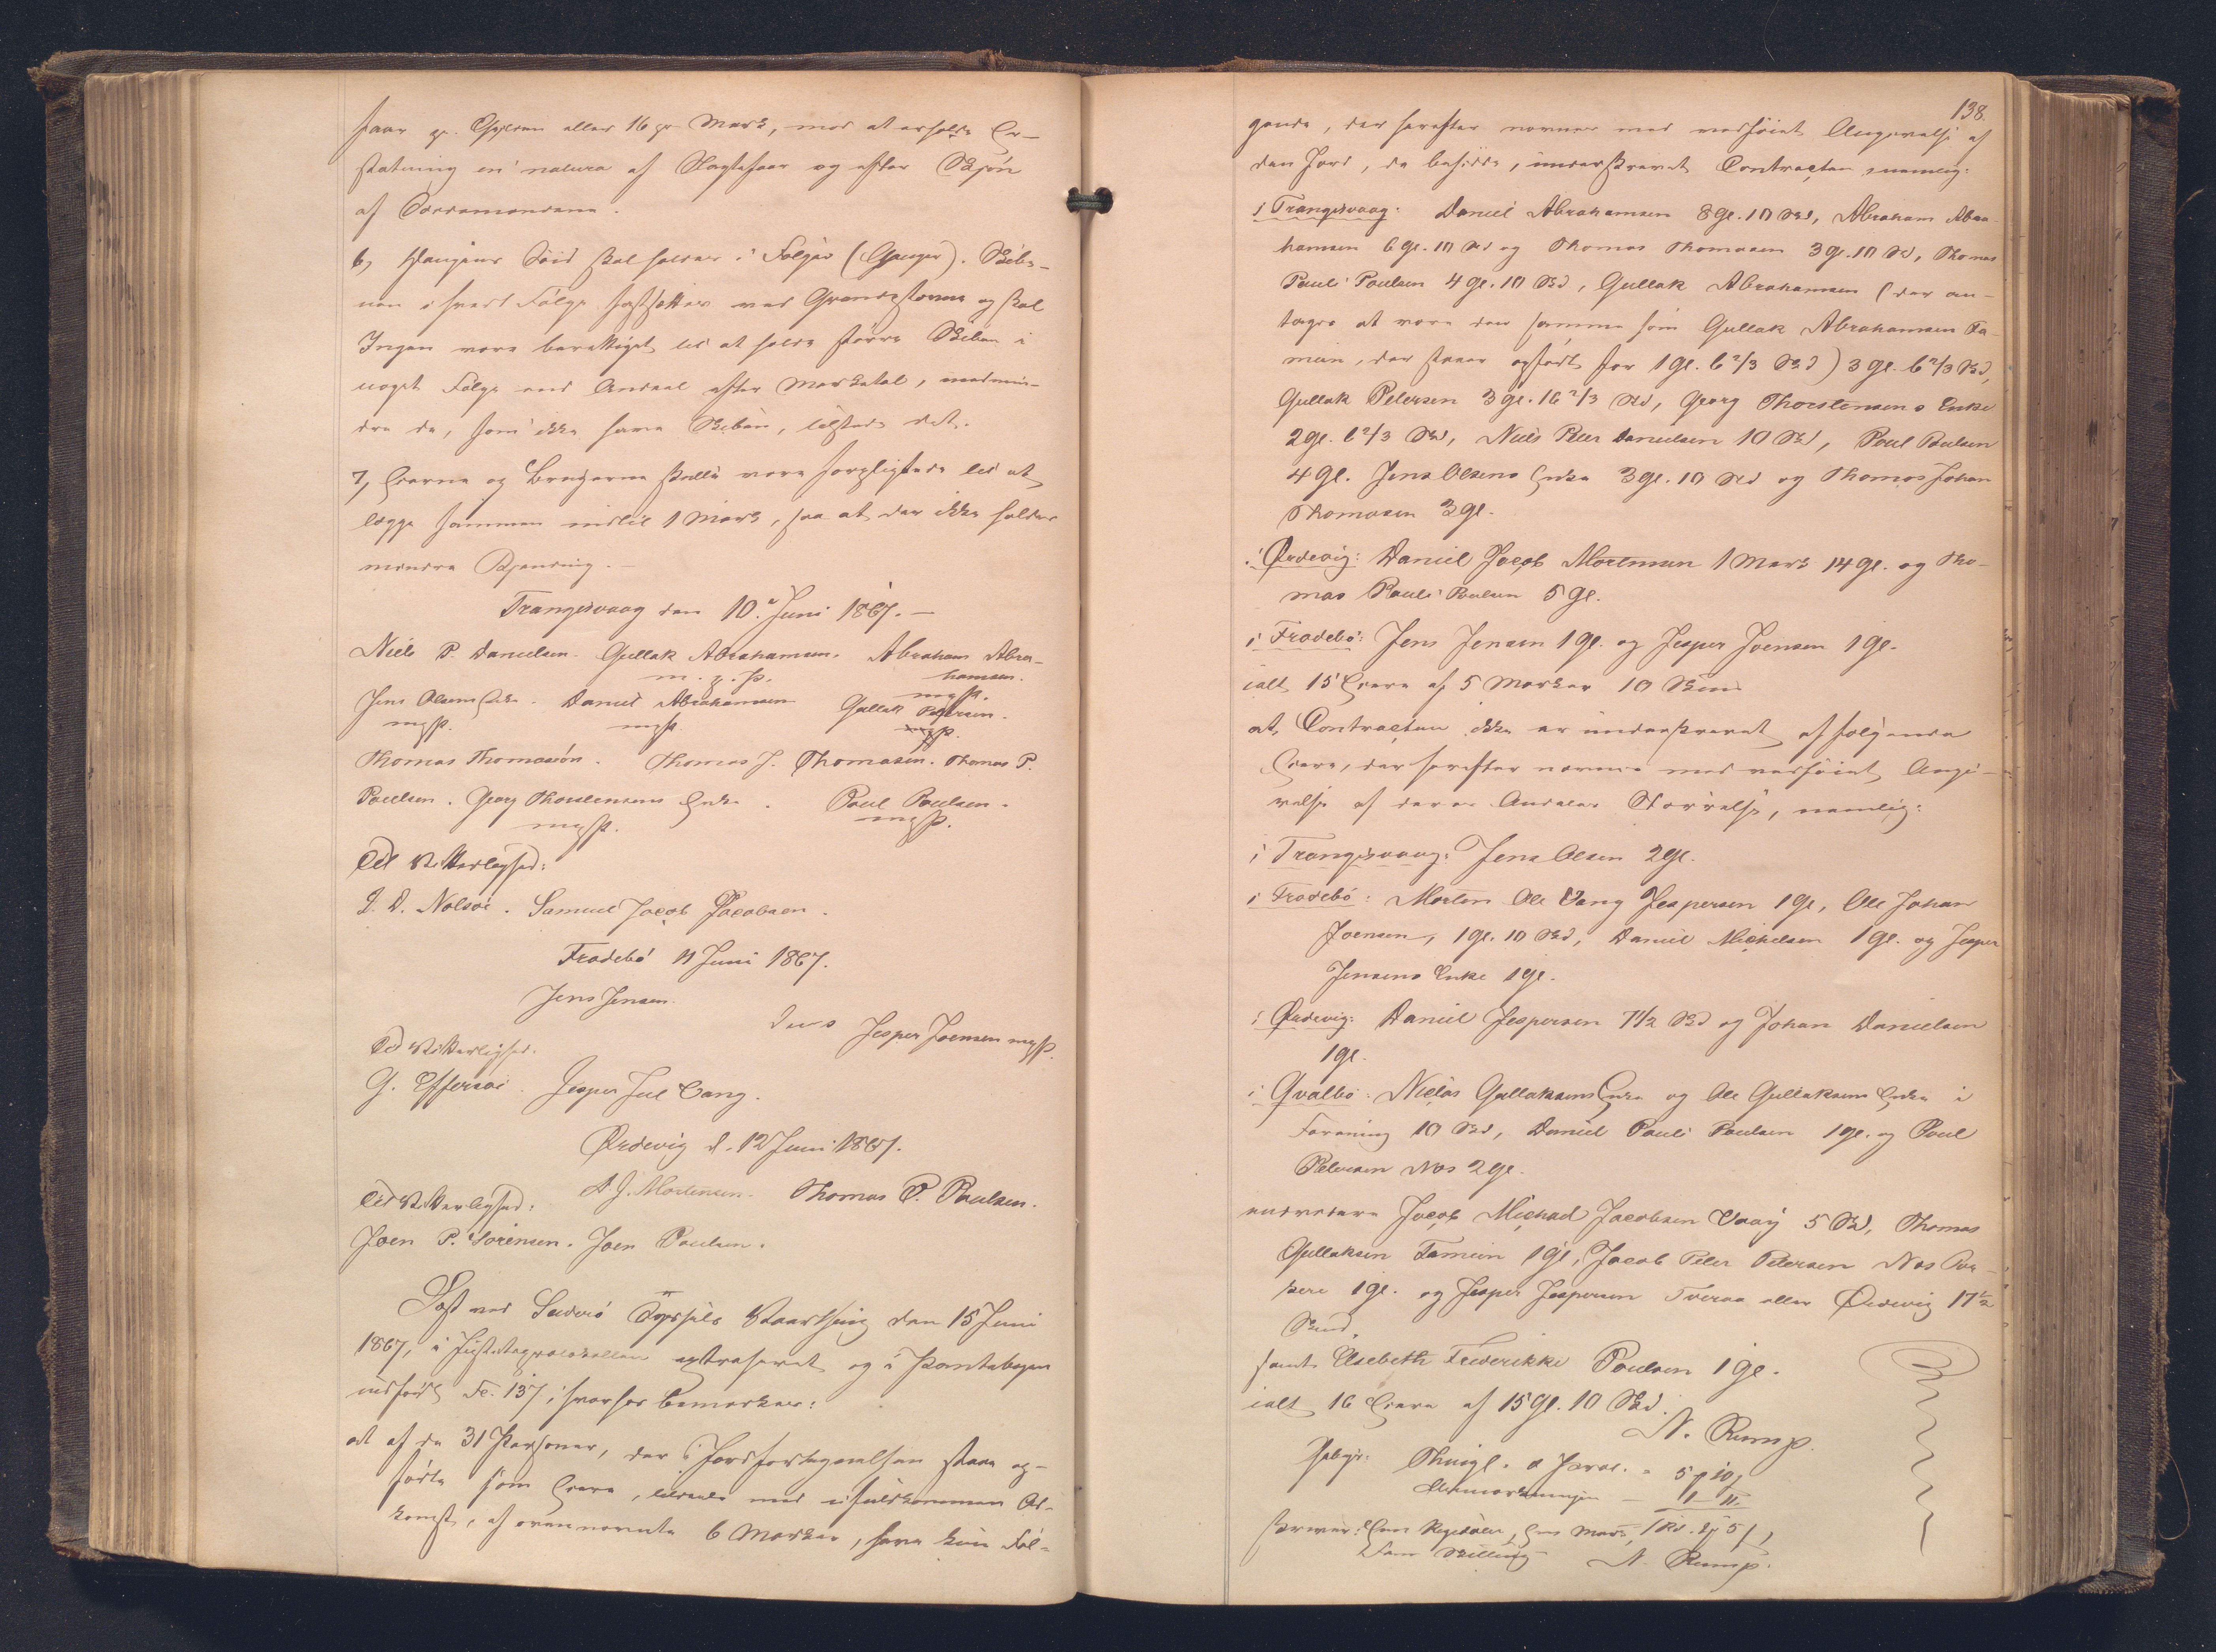 Faar pr. Gylden eller 16 pr Mark, mod at erholde Er-
statning in natura af Slagtefaar og efter Skjön
af Oldermændene.
6, Haugens Söid skal holdes i Følger (Gauger). Stib-
nen i hvert Følge fastsættes ved Grandestevne og skal
Ingen være berettiget til at holde större Stibn i
noget Følge end Andeel efter Marketal, medmin-
dre de, som ikke have Stibn, tilstede det.
7, Eierne og Brugerne skulle være forpligtede til at
lægge sammen indtil 1 Mark, saa at der ikke holdes
mindre Besætning.
Trangisvaag den 10de Juni 1867. —
Niels P. Danielsen. Gullak Abrahamsen. Abraham Abra-
m. f. P. hamsen.
Jens Olsens Enke. Daniel Abrahamsen Gullak Petersen.
mfP. mfP. mfP.
Thomas Thomassön. Thomas J. Thomasen. Thomas P.
Poulsen. Georg Thorstensens Enke. Poul Poulsen.
mfP. mfP.
Til Vitterlighed:
J. D. Nolsöe. Samuel Jacob Jacobsen.
Frodebö 11 Juni 1867.
Jens Jensen.
Jesper Joensen mfP.
Til Vitterlighed.
G. Effersöe. Jesper Juul Vang.
Ördevig d. 12 Juni 1867.
D. J. Mortensen. Thomas P. Poulsen.
Til Vitterlighed:
Joen P. Sörensen. Joen Poulsen.
Læst ved Suderö Syssels Vaarthing den 15 Juni
1867, i Justitsprotokollen extraheret og i Pantebogen
indfört Fol. 137, hvorhos bemærkes:
at af de 31 Personer, der i Jordfortegnelsen staae op-
förte som Eiere, tildeels med ufuldkommen Ad-
komst, af ovennævnte 6 Marker, have kun Föl-
138.
gende, der herefter nævnes med vedföiet Angivelse af
den Jord, de besidde, underskrevet Contracten, nemlig:
i Trangisvaag: Daniel Abrahamsen 8 Gl. 10 Skd, Abraham Abra-
hamsen 6 Gl. 10 Skd og Thomas Thomasen 3 Gl. 10 Skd, Thomas
Pauli Poulsen 4 Gl. 10 Skd, Gullak Abrahamsen (der an-
tages at være den samme som Gullak Abrahamsen Ta-
mein, der staaer opfört for 1 Gl. 6 2/3 Skd) 3 Gl. 6 2/3 Skd,
Gullak Petersen 3 Gl. 16 2/3 Skd, Georg Thorstensens Enke
2 Gl. 6 2/3 Skd, Niels Peter Danielsen 10 Skd, Poul Poulsen
4 Gl. Jens Olsens Enke 3 Gl. 10 Skd og Thomas Johan
Thomasen 3 Gl.
i Ördevig: Daniel Jacob Mortensen 1 Mark 14 Gl. og Tho-
mas Pauli Poulsen 5 Gl.
i Frodebö: Jens Jensen 1 Gl. og Jesper Joensen 1 Gl.
ialt 15 Eiere af 5 Marker 10 Skind
at Contracten ikke er underskrevet af fölgende
Eiere, der herefter nævnes med vedföiet Angi-
velse af deres Andeles Störrelse, nemlig:
i Trangisvaag: Jens Olsen 2 Gl.
i Frodebö: Morten Ole Vang Jespersen 1 Gl, Ole Johan
Joensen, 1 Gl. 10 Skd, Daniel Michelsen 1 Gl. og Jesper
Jensens Enke 1 Gl.
i Ördevig: Daniel Jespersen 7 1/2 Skd og Johan Danielsen
1 Gl.
i Qvalbö: Niclas Gullaksens Enke og Ole Gullaksens Enke i
Forening 10 Skd, Daniel Pauli Poulsen 1 Gl. og Poul
Petersen Næs 2 Gl.
endvidere Jacob Michael Jacobsen Vaag 5 Skd, Thomas
Gullaksen Tamein 1 Gl, Jacob Peter Petersen Næs Por-
kere 1 Gl. og Jesper Jespersen Tveraa eller Ördevig 17 1/2
Skind,
samt Elsebeth Frederikke Poulsen 1 Gl.
ialt 16 Eiere af 15 Gl. 10 Skd.
N. Rump.
Gebyr: Thingl. o Prot. - 5 ƒ 10 ß
Anmærkningen — 1 - 11.
skriver: Een Rigsdaler, Een Mark, 1 Rd. 1 ƒ 5 ß
Fem Skilling N. Rump.